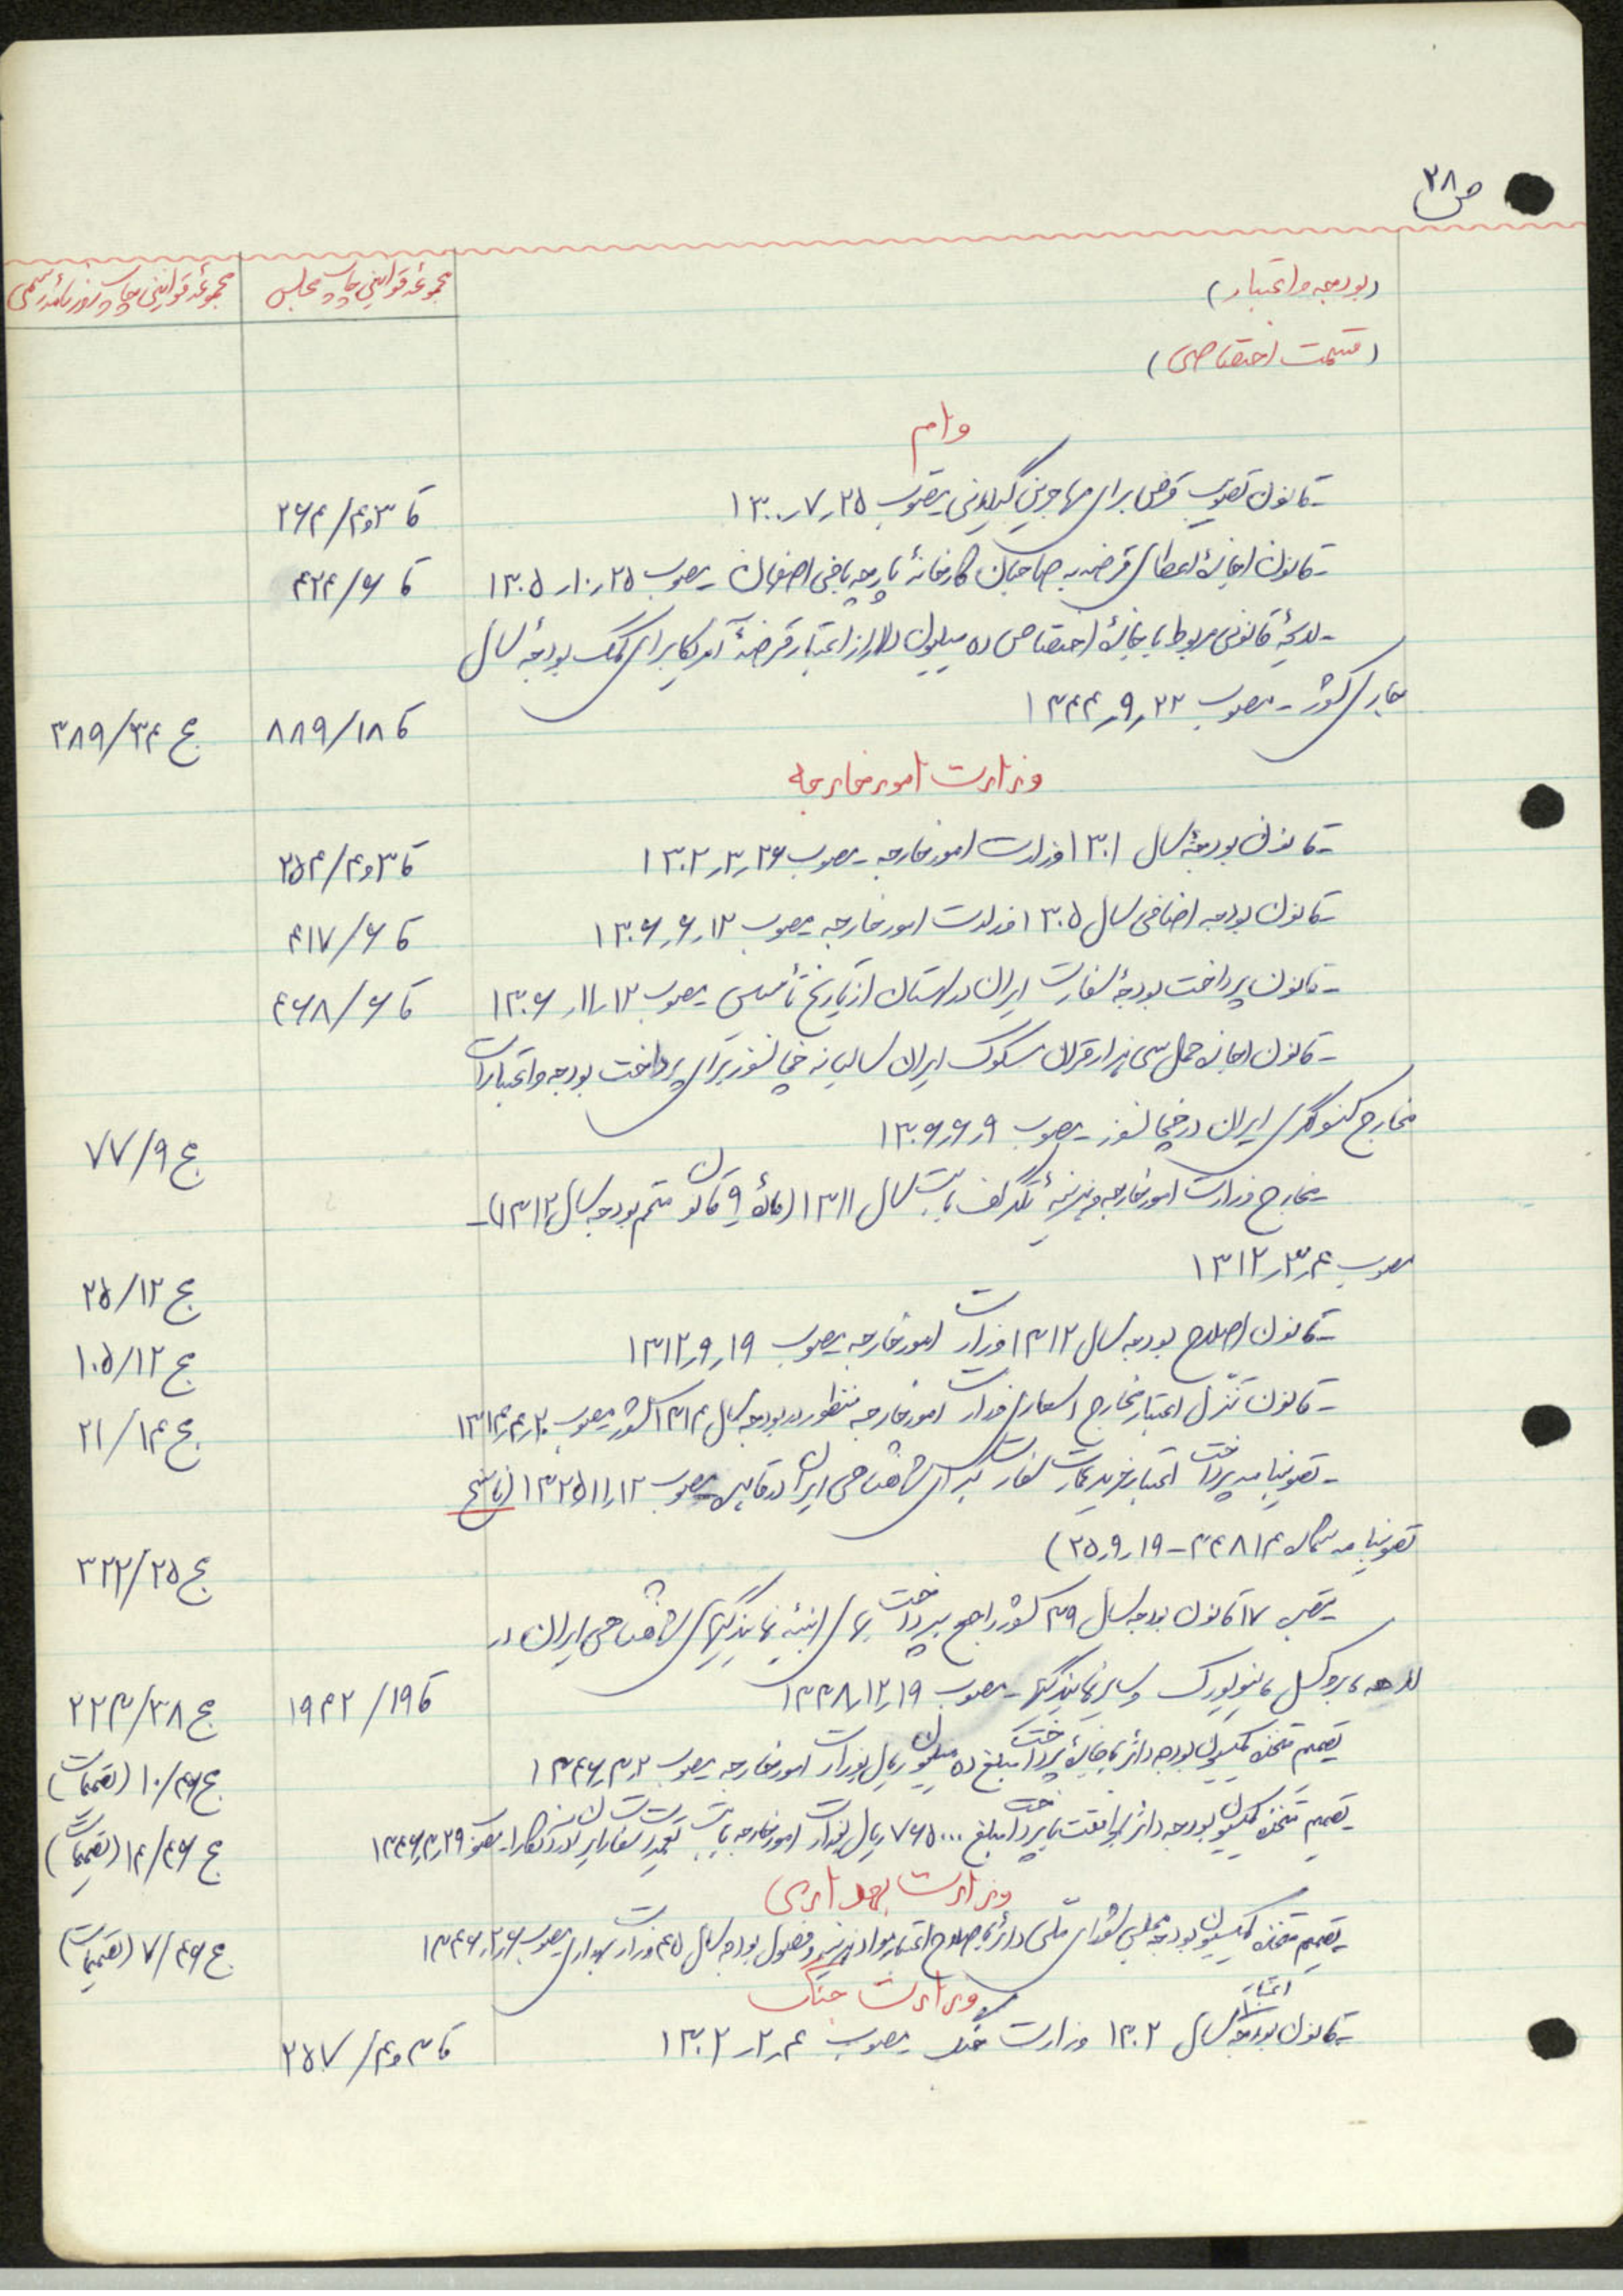 ص ۲۸
(بودجه و اعتبار) مجموعهٔ قوانین چاپ مجلس مجموعهٔ قوانین چاپ روزنامهٔ رسمی
(قسمت اختصاصی)
وام
-قانون تصویب قرض برای مهاجرین گیلانی مصوب ۲۵ر۷ر۱۳۰۰ کا ۳و۴/۲۶۴
-قانون اجازهٔ اعطای قرضه به صاحبان کارخانهٔ پارچه بافی اصفهان مصوب ۲۵ر۱۰ر۱۳۰۵ کا ۶/۴۲۴
-لایحهٔ قانونی مربوط باجازهٔ اختصاص ده میلیون دلار از اعتبار قرضهٔ آمریکا برای کمک بودجهٔ سال
جاری کشور - مصوب ۲۲ر۹ر۱۳۴۴ کا ۱۸/۸۸۹ ج ۳۴/۳۸۹
وزارت امور خارجه
-قانون بودجهٔ سال ۱۳۰۱ وزارت امور خارجه - مصوب ۲۶ر۳ر۱۳۰۲ کا ۳و۴/۲۵۴
-قانون بودجه اضافی سال ۱۳۰۵ وزارت امور خارجه مصوب ۱۲ر۶ر۱۳۰۶ کا ۶/۴۱۷
-قانون پرداخت بودجهٔ سفارت ایران در لهستان از تاریخ تأسیس مصوب ۱۲ر۱۱ر۱۳۰۶ کا ۶/۴۶۸
-قانون اجازه حمل سی هزار قران مسکوک ایران سالیانه خچانسوز برای پرداخت بودجه و اعتبارات
مخارج کنسولگری ایران در خچانسوز - مصوب ۹ر۶ر۱۳۰۶ ج ۹/۷۷
-مخارج وزارت امور خارجه و هزینهٔ تلگراف بابت سال ۱۳۱۱ (مادهٔ ۹ قانون متمم بودجه سال ۱۳۱۲)-
مصوب ۴ر۳ر۱۳۱۲ ج ۱۲/۲۵
-قانون اصلاح بودجه سال ۱۳۱۲ وزارت امور خارجه مصوب ۱۹ر۹ر۱۳۱۲ ج ۱۲/۱۰۵
-قانون تنزل اعتبار مخارج اسعاری وزارت امور خارجه منظور در بودجه سال ۱۳۱۴ کشور مصوب ۲۰ر۴ر۱۳۱۴ ج ۱۴/۲۱
-تصویبنامه پرداخت اعتبار خرید عمارت سفارت کبرای شاهنشاهی ایران در قاهره مصوب ۱۲ر۱۱ر۱۳۲۵ (ناسخ
تصویبنامه شماره ۳۴۸۱۴ - ۱۹ر۹ر۲۵) ج ۲۵/۳۲۲
تبصره ۱۷ قانون بودجه سال ۳۹ کشور راجع بپرداخت بهای ابنیهٔ نمایندگیهای شاهنشاهی ایران در
لاهه، بروکسل، نیویورک و سایر نمایندگیها - مصوب ۱۹ر۱۲ر۱۳۳۸ کا ۱۹/۱۹۴۲ ج ۳۸/۲۲۳
تصمیم متخذه کمیسیون بودجه دائر باجازهٔ پرداخت مبلغ ده میلیون ریال بوزارت امور خارجه مصوب ۲ر۳ر۱۳۴۶ ج ۴۶/۱۰ (تصمیمات)
تصمیم متخذه کمیسیون بودجه دائر بموافقت با پرداخت مبلغ ۷۶۵۰۰۰۰ ریال بوزارت امور خارجه بابت تعمیرات سفارت ایران در آنکارا - مصوب ۲۹ر۳ر۱۳۴۶ ج ۴۶/۱۴ (تصمیمات)
وزارت بهداری
تصمیم متخذه کمیسیون بودجه مجلس شورای ملی دائر باصلاح اعتبار مواد هزینه و فصول بودجه سال ۴۵ وزارت بهداری مصوب ۶ر۲ر۱۳۴۶ ج ۴۶/۷ (تصمیمات)
وزارت جنگ
اعتبار
-قانون بودجه سال ۱۳۰۲ وزارت جنگ مصوب ۴ر۲ر۱۳۰۲ کا ۳و۴/۲۵۷